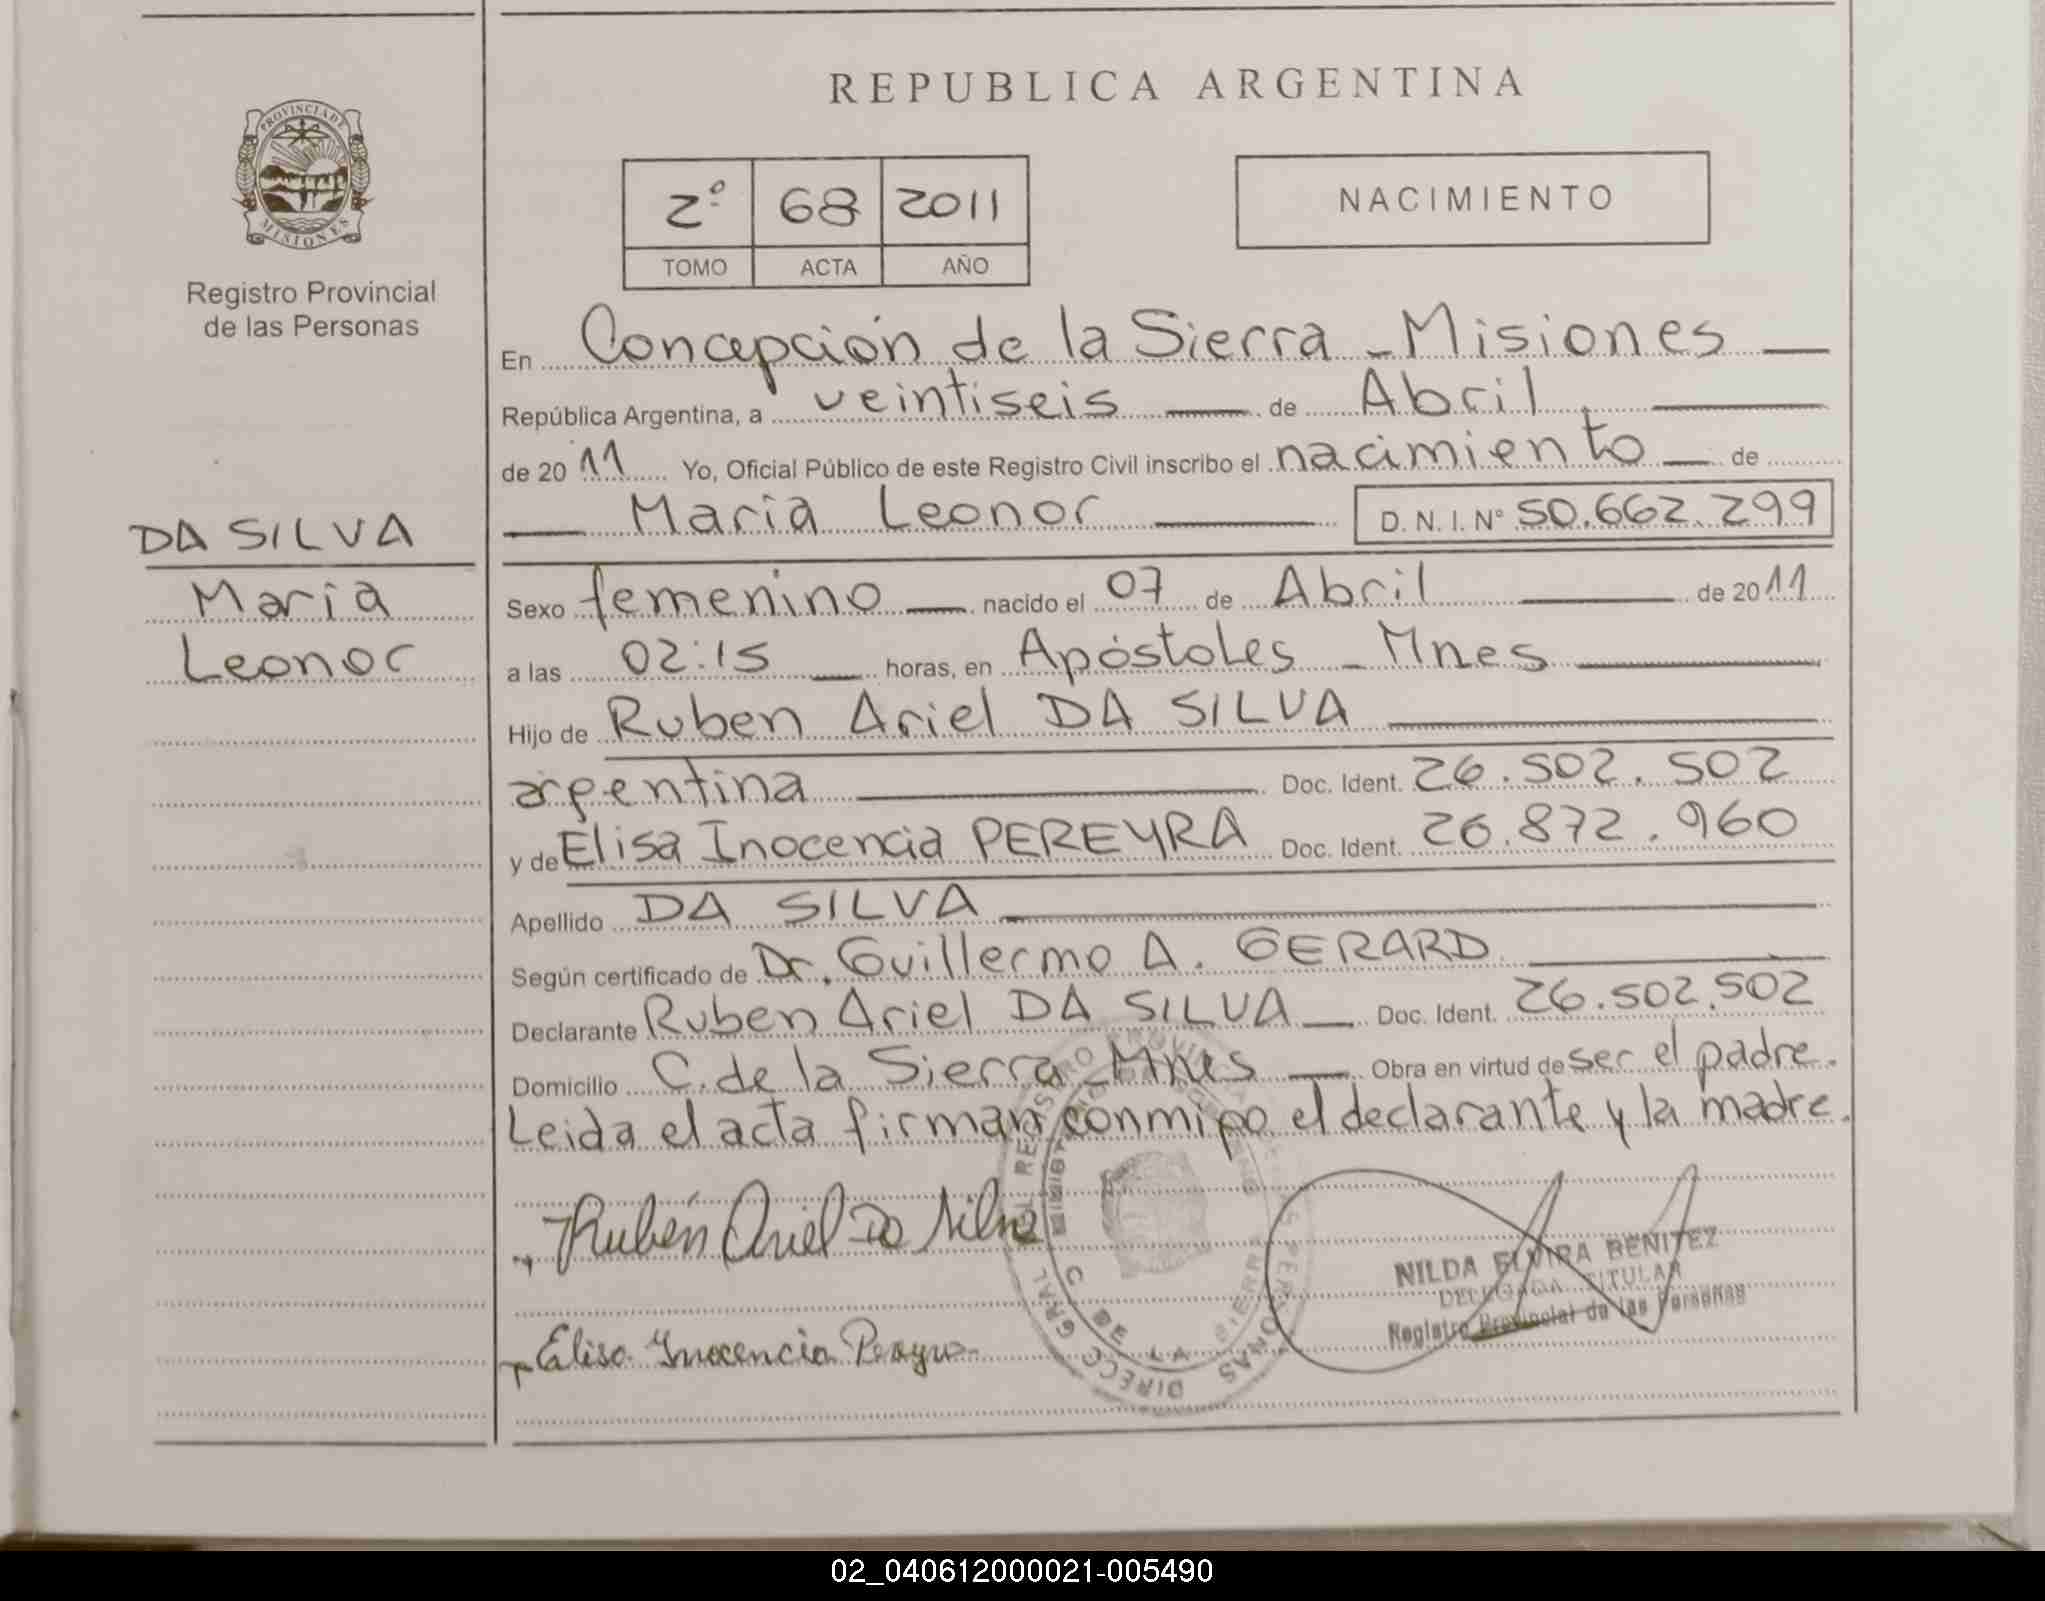 REPUBLICA ARGENTINA
PROVINCIA DE
MISIONES
Registro Provincial
de las Personas
2º 68 2011
TOMO ACTA AÑO
NACIMIENTO
En Concepción de la Sierra - Misiones
República Argentina, a veintiseis de Abril
de 2011 Yo, Oficial Público de este Registro Civil inscribo el nacimiento de
Maria Leonor D. N. I. Nº 50.662.299
DA SILVA
Maria
Leonor
Sexo femenino nacido el 07 de Abril de 2011
a las 02:15 horas, en Apóstoles - Mnes
Hijo de Ruben Ariel DA SILVA
argentina Doc. Ident. 26.502.502
y de Elisa Inocencia PEREYRA Doc. Ident. 26.872.960
Apellido DA SILVA
Según certificado de Dr. Guillermo A. GERARD
Declarante Ruben Ariel DA SILVA Doc. Ident. 26.502.502
Domicilio C. de la Sierra - Mnes Obra en virtud de ser el padre.
Leida el acta firman conmigo el declarante y la madre.
Rubén Ariel Da Silva
NILDA ELVIRA BENITEZ
DELEGADA TITULAR
Registro Provincial de las Personas
Elisa Inocencia Pereyra
C DE LA SIERRA
02_040612000021-005490